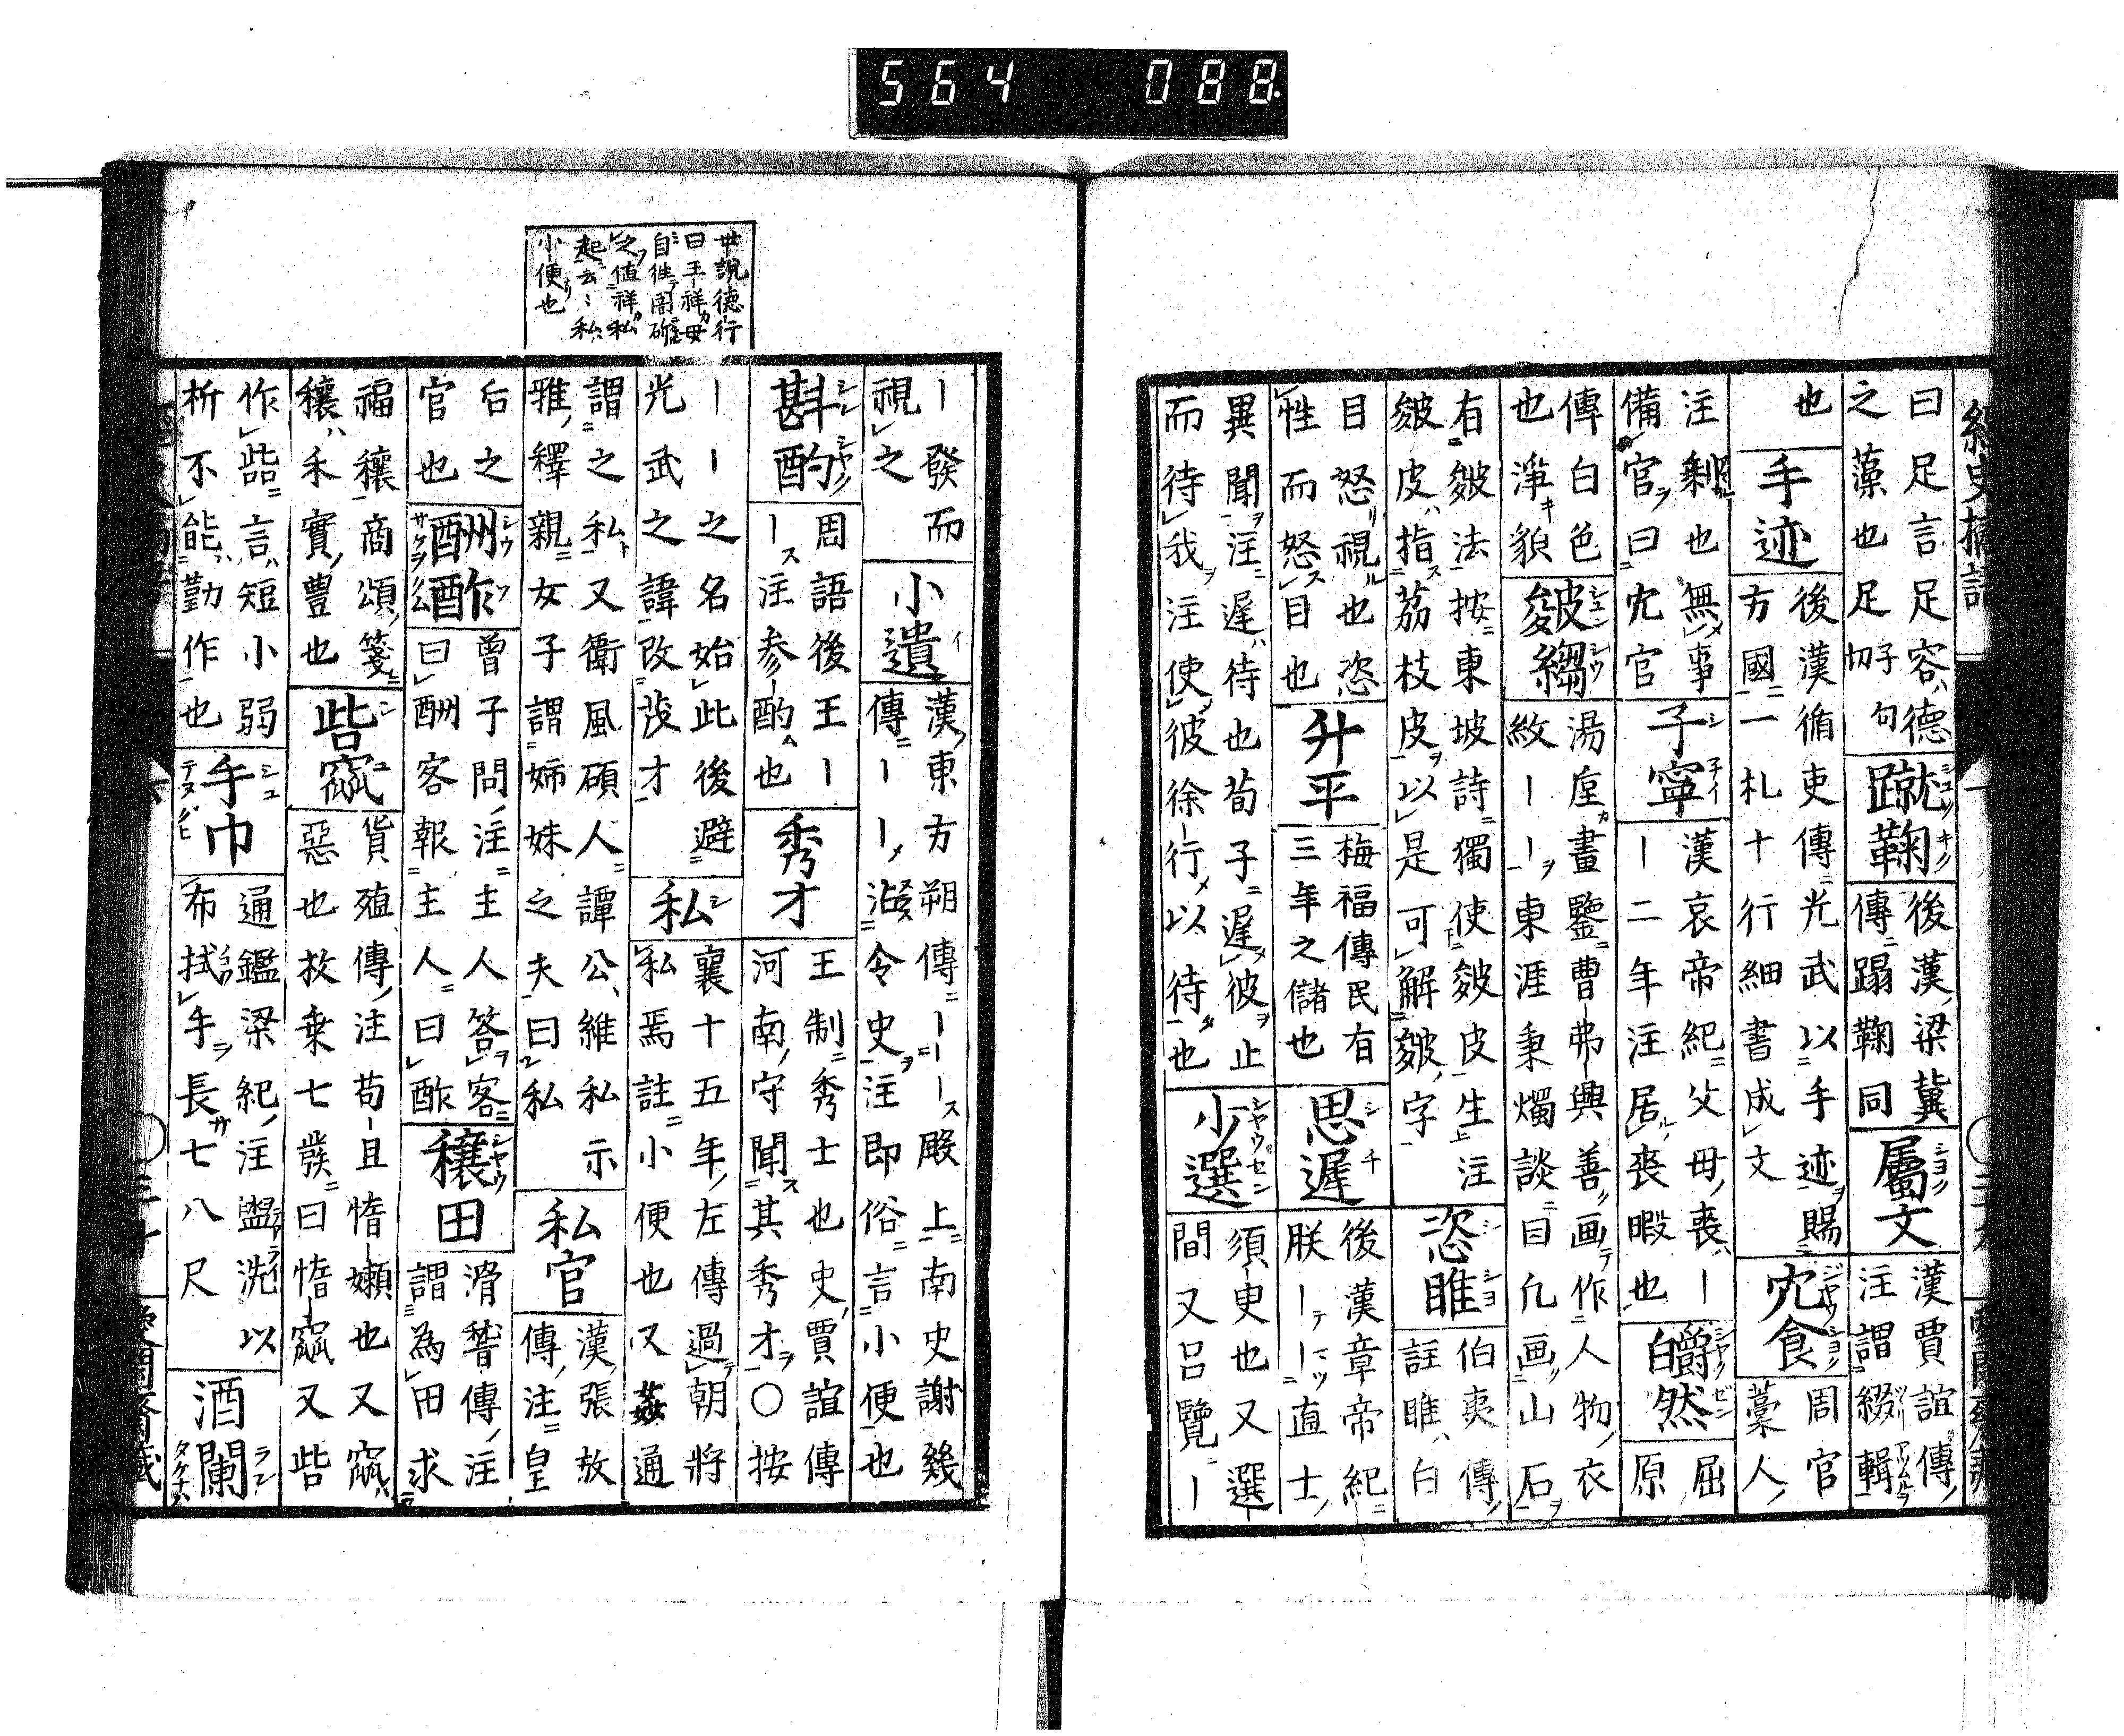 564 088
曰足言足容德
之藻也足子句切
蹴鞠
後漢梁冀
傳蹋鞠同
屬文
漢賈誼傳
注謂綴輯
也
手迹
後漢循吏傳光武以手迹賜
方國一札十行細書成文
冗食
周官
藁人
注剩也無事
備官曰冗官
子寧
漢哀帝紀父母喪ー
ー二年注居喪暇也
皭然
屈
原
傳白色
也淨貌
皴縐
湯垕畫鑒曹弗興善画作人物衣
紋ーー東涯秉燭談曰凢画山石
有皴法按東坡詩獨使皴皮生注
皴皮指荔枝皮以是可解皴字
恣睢
伯夷傳
註睢白
目怒視也恣
性而怒目也
升平
梅福傳民有
三年之儲也
思遲
後漢章帝紀
朕ーー直士
異聞注遲待也荀子遲彼止
而待我注使彼徐行以待也
小選
須更也又選
間又呂覽ー
世說德行
曰王祥母
自徃闇斫
之値祥私
起云〻私
小便也
ー發而
視之
小遺
漢東方朔傳ーー殿上南史謝幾
傳ーー沾令史注即俗言小便也
斟酌
周語後王ー
ー注参酌也
秀才
王制秀士也史賈誼傳
河南守聞其秀才〇按
ーー之名始此後避
光武之諱改茂才
私
襄十五年左傳過朝將
私焉註小便也又姦通
謂之私又衛風碩人譚公維私示
雅釋親女子謂姉妹之夫曰私
私官
漢張放
傳注皇
后之
官也
酬酢
曾子問注主人答客
曰酬客報主人曰酢
穰田
滑稽傳注
謂為田求
福穰商頌箋
穰禾實豊也
呰窳
貨殖傳注苟且惰嬾也又窳
惡也枚乗七發曰惰窳又呰
作㖢言短小弱
析不能勤作也
手巾
通鑑梁紀注盥洗以
布拭手長七八尺
酒闌